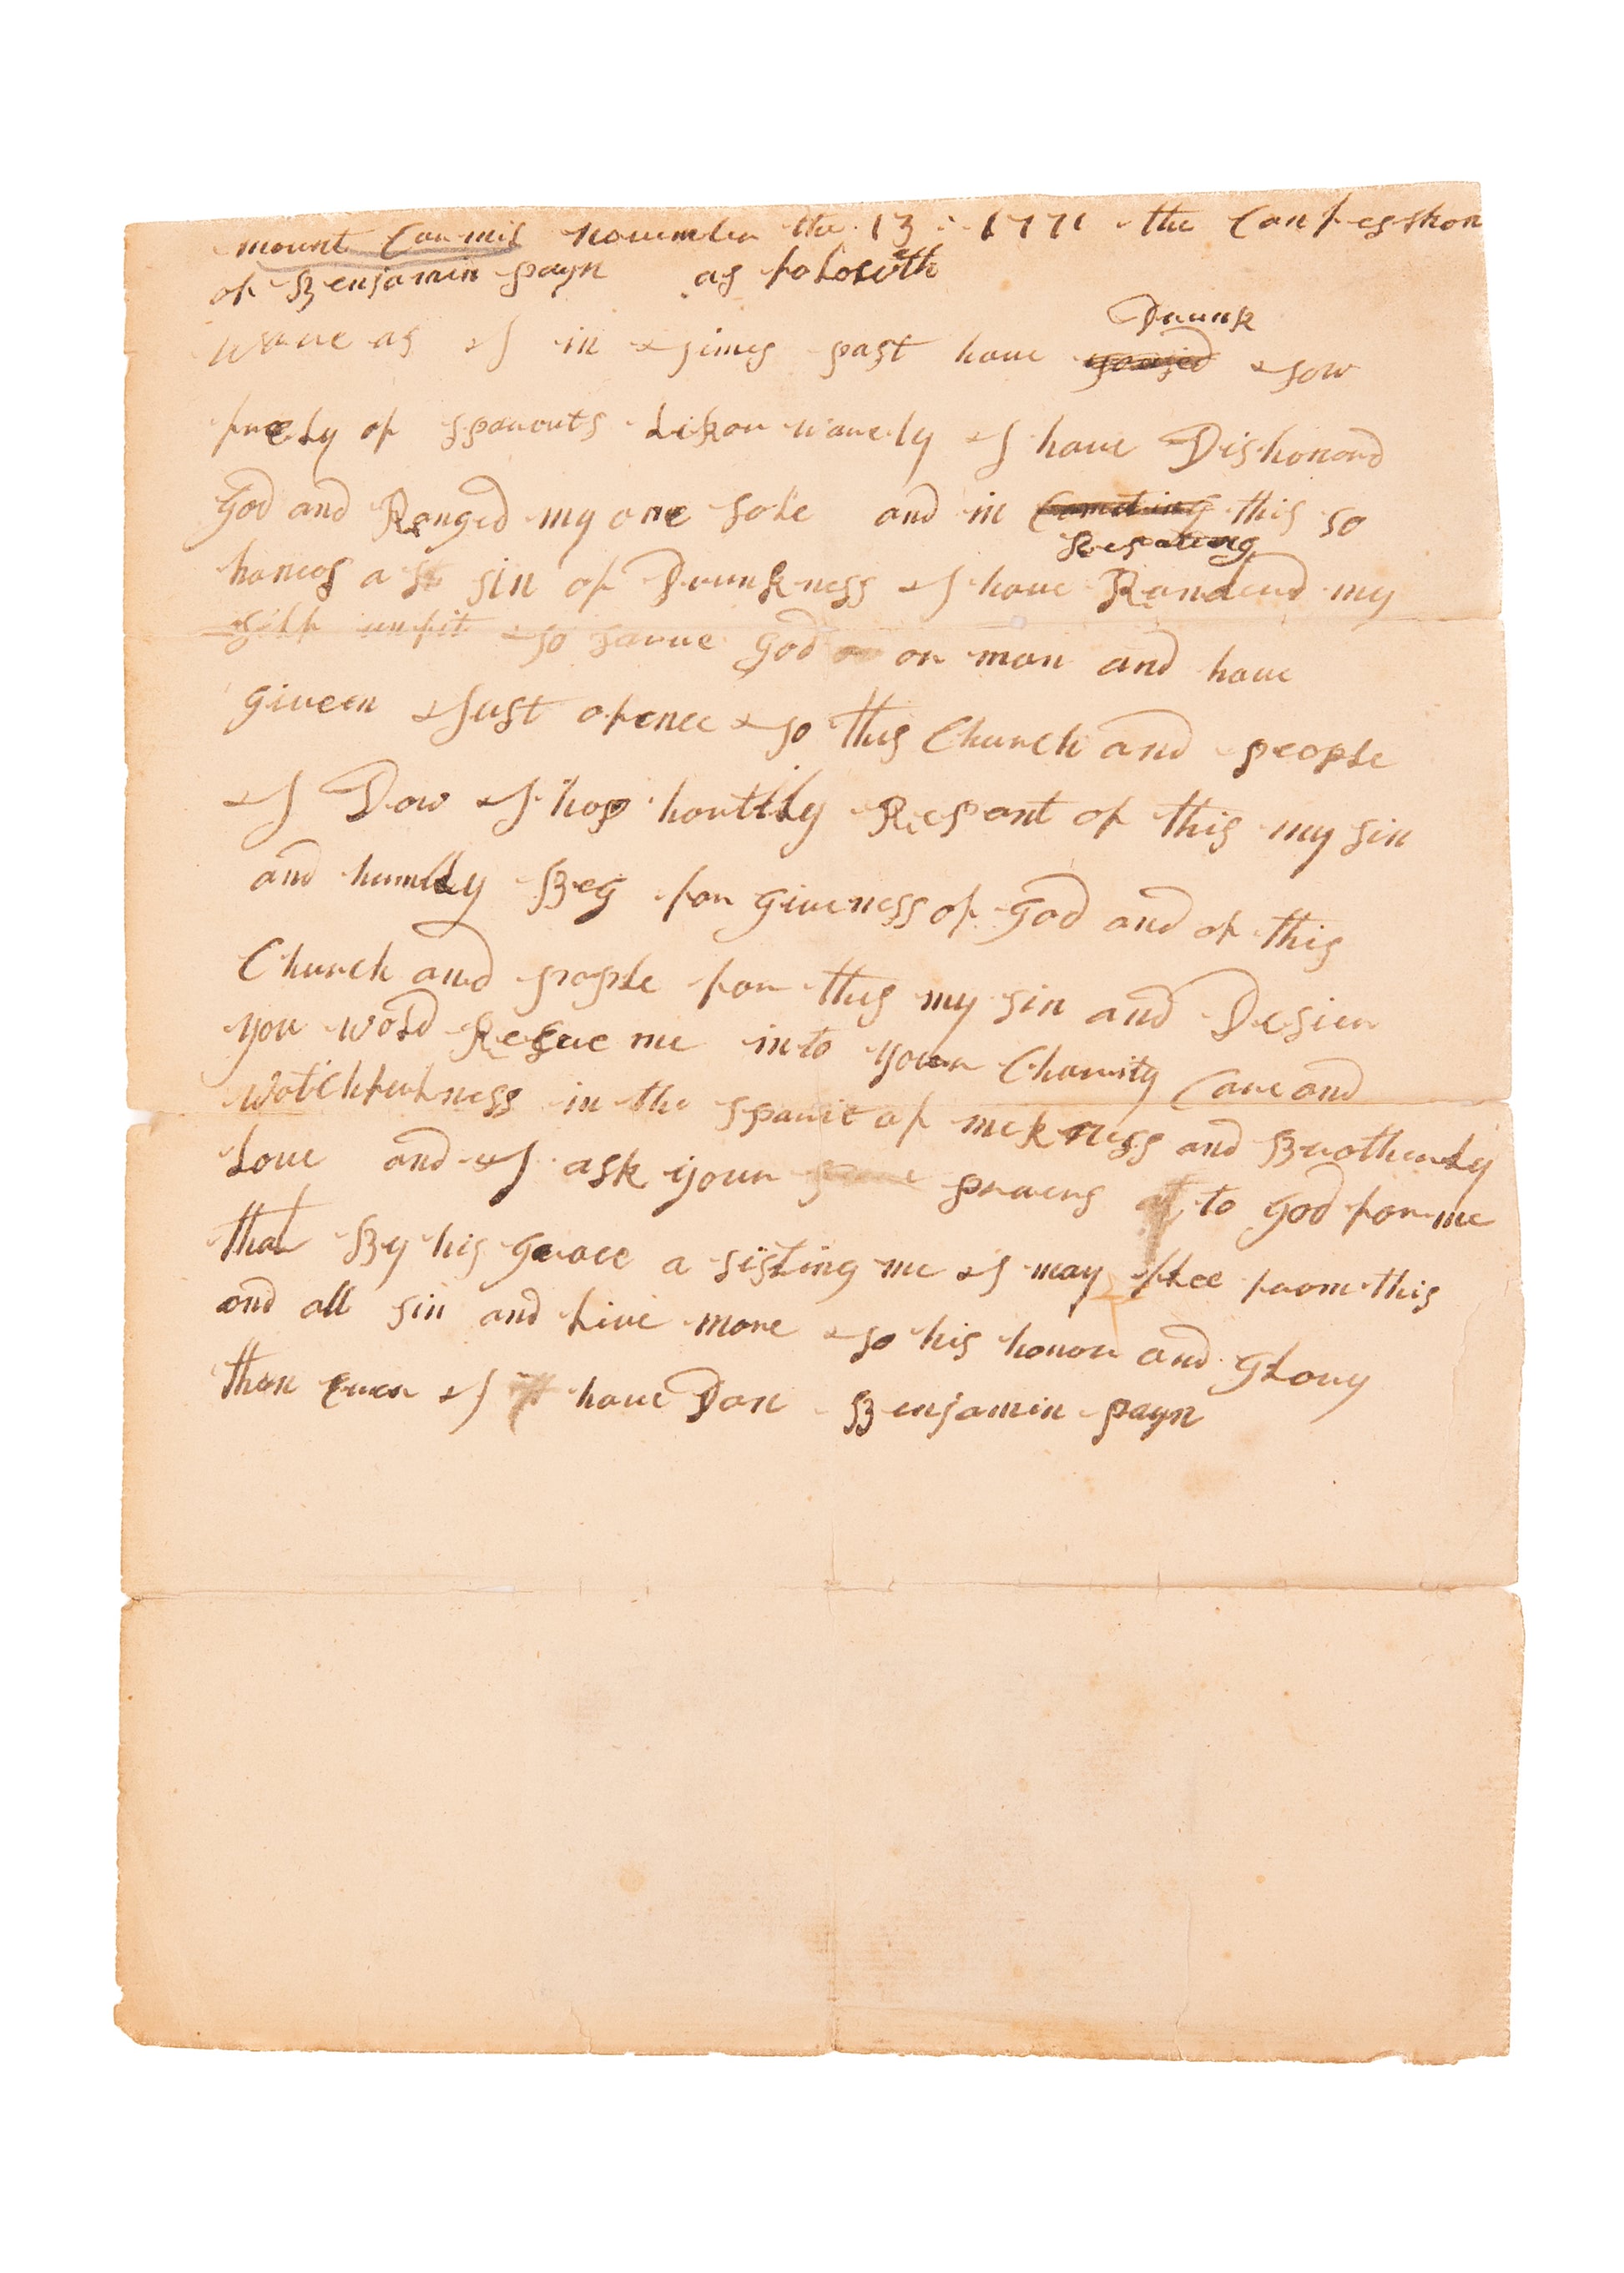 mount Carmil november the 13 : 1771 the Confesshon
of Benjamin payn as foloweth
wareas I in times past have Drunk tow
frely of sparuts Likor rarely I have Dishonord
God and Ronged my one sole and in this so
Repating
haneos a sin of Drunkness I have Randerd my
self unfit to sarve God or man and have
giveen Just ofence to this Church and people
I Dow I hop hartily Repent of this my sin
and humbly Beg forgiveness of God and of this
Church and pople for this my sin and Desier
you wold Reseve me into your Charity Care and
Watchfulness in the sparit of mekness and Brotherly
Love and I ask your praers to God for me
that By his Grace a sisting me I may flee from this
and all sin and Live more to his honor and Glory
then Ever I have Don Benjamin payn